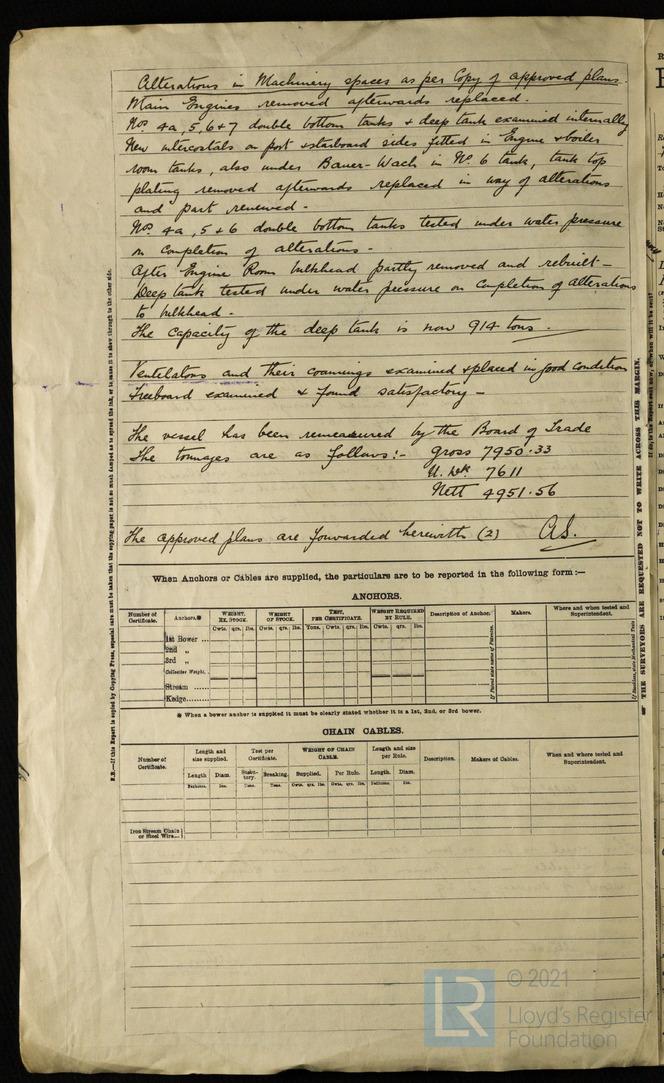 Alterations in Machinery spaces as per Copy of approved plans.
Main Engines removed afterwards replaced.
Nos. 4a, 5, 6 + 7 double bottom tanks + deep tank examined internally
New intercostals on port + starboard sides fitted in Engine + boiler
room tanks, also under Bauer-Wach in No. 6 tank, tank top
plating removed afterwards replaced in way of alterations
and part renewed -
Nos. 4a, 5 + 6 double bottom tanks tested under water pressure
on completion of alterations -
After Engine Room bulkhead partly removed and rebuilt -
Deep tank tested under water pressure on Completion of alterations
to bulkhead -
The Capacity of the deep tank is now 914 tons.
Ventilators and their coamings examined + placed in good condition
Freeboard examined + found satisfactory -
The vessel has been remeasured by the Board of Trade
The tonnages are as follows :- Gross 7950.33
U. Dk. 7611
Nett 4951.56
The approved plans are forwarded herewith (2) A.S.
When Anchors or Cables are supplied, the particulars are to be reported in the following form :—
ANCHORS.
Number of Certificate. Anchors.* WEIGHT. EX. STOCK. WEIGHT OF STOCK. TEST, PER CERTIFICATE. WEIGHT REQUIRED BY RULE. Description of Anchor. Makers. Where and when tested and Superintendent.
Cwts. qrs. lbs. Cwts. qrs. lbs. Tons. Cwts. qrs. lbs. Cwts. qrs. lbs.
1st Bower ...
2nd „
3rd „
Collective Weight.
Stream ......
Kedge......
* When a bower anchor is supplied it must be clearly stated whether it is a 1st, 2nd, or 3rd bower.
CHAIN CABLES.
Number of Certificate. Length and size supplied. Test per Certificate. WEIGHT OF CHAIN CABLE. Length and size per Rule. Description. Makers of Cables. When and where tested and Superintendent.
Length Diam. Statutory. Breaking. Supplied. Per Rule. Length. Diam.
Fathoms. Ins. Tons. Tons. Cwts. qrs. lbs. Cwts. qrs. lbs. Fathoms. Ins.
Iron Stream Chain or Steel Wire...
THE SURVEYORS ARE REQUESTED NOT TO WRITE ACROSS THIS MARGIN.
LR
© 2021
Lloyd's Register
Foundation